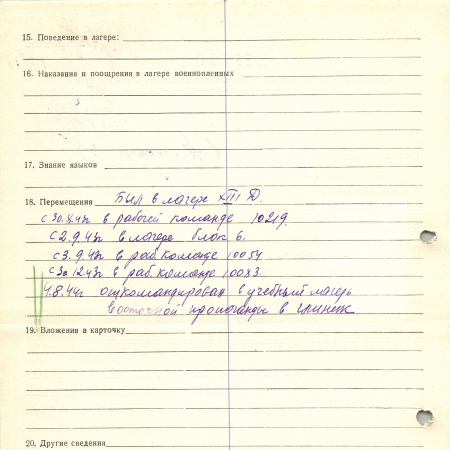 15. Поведение в лагере:
16. Наказания и поощрения в лагере военнопленных
17. Знание языков
18. Перемещения Был в лагере XIII Д.
в рабочей команде 10219.
с 2.9.43г в лагере блок 6.
с 3.9.43г в раб. команде 10054
в раб. команде
4.8.44г откомандирован в учебный лагерь
восточной пропаганды в
19. Вложения в карточку
20. Другие сведения